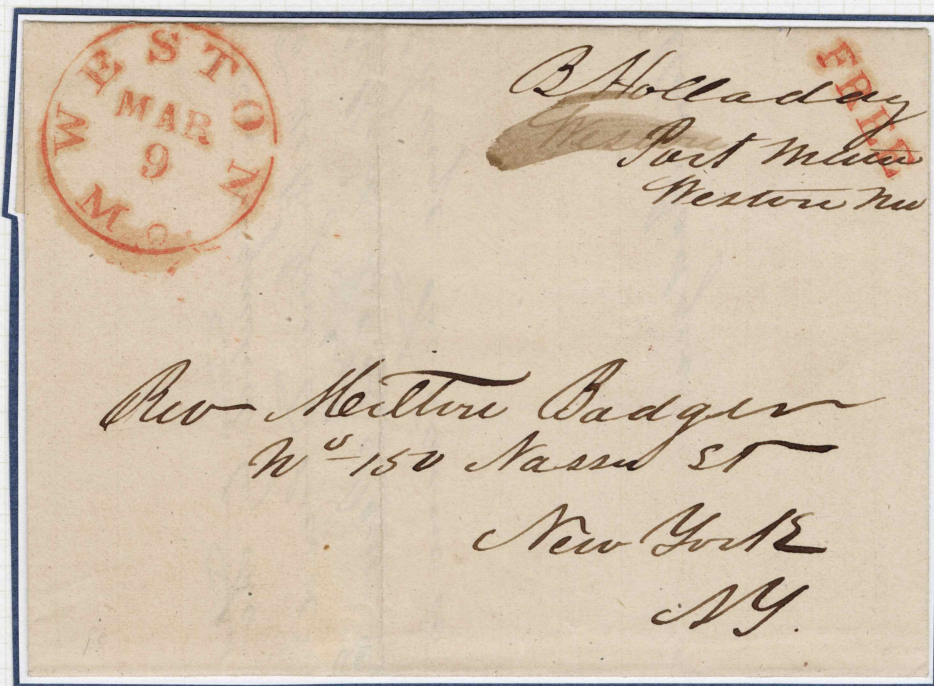 WESTON
MAR
9
Mo.
FREE
B Holladay
Weston
Post
Weston Mo
Rev Milton Badger
No 150 Nassu St
New York
NY.